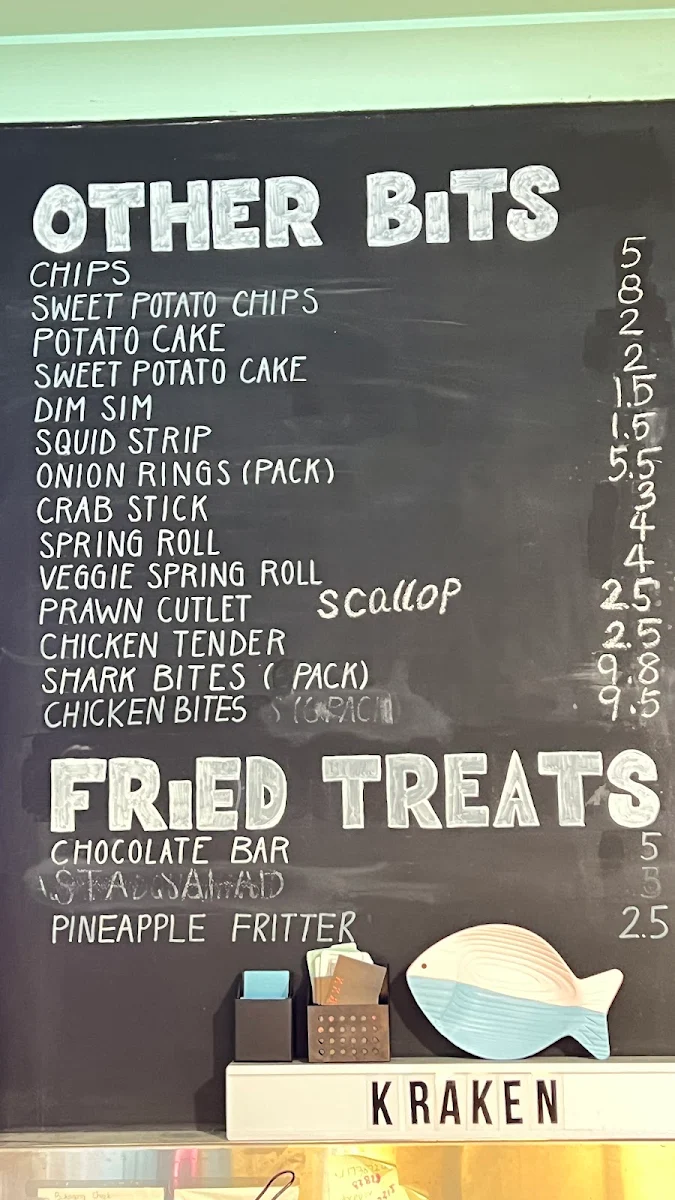 OTHER BiTS
CHIPS 5
SWEET POTATO CHIPS 8
POTATO CAKE 2
SWEET POTATO CAKE 2
DIM SIM 1.5
SQUID STRIP 1.5
ONION RINGS (PACK) 5.5
CRAB STICK 3
SPRING ROLL 4
VEGGIE SPRING ROLL 4
PRAWN CUTLET scallop 2.5
CHICKEN TENDER 2.5
SHARK BITES ( PACK) 9.8
CHICKEN BITES 9.5
FRiED TREATS
CHOCOLATE BAR 5
PINEAPPLE FRITTER 2.5
KRAKEN